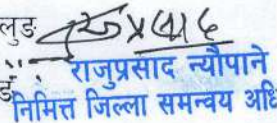 लुङ
राजुप्रसाद न्यौपाने
निमित्त जिल्ला समन्वय अधि